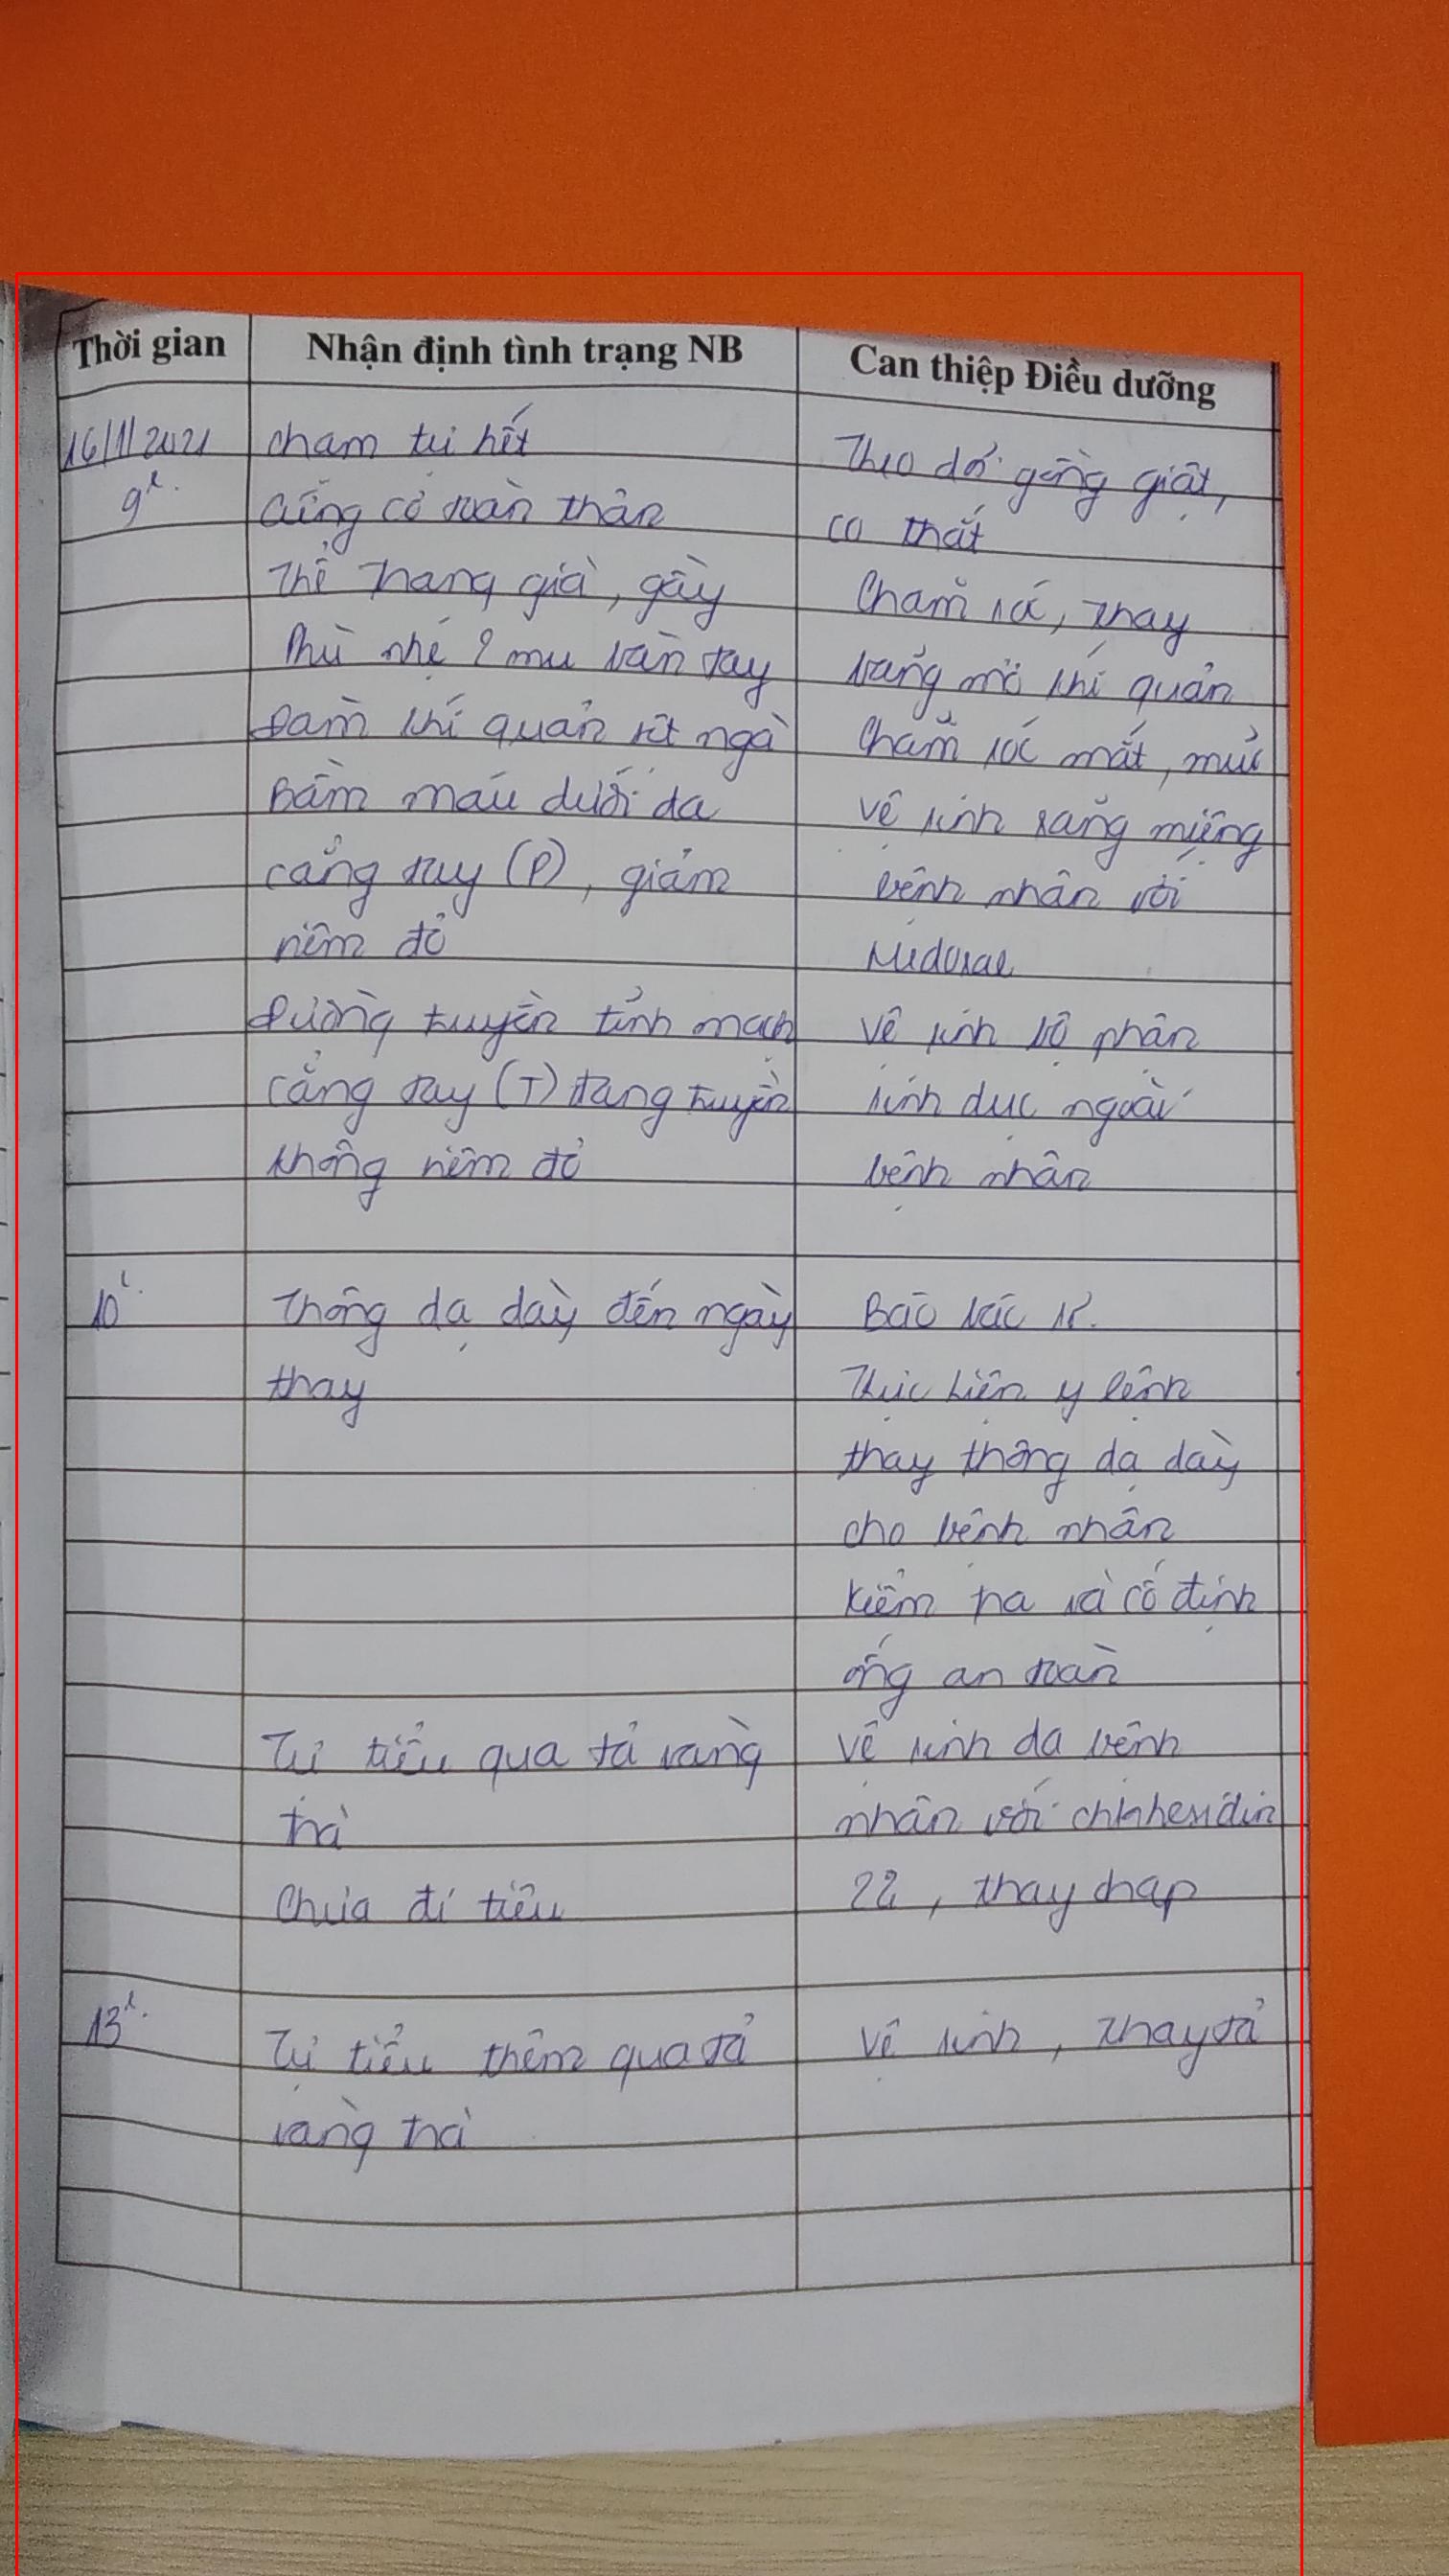 Thời gian | Nhận định tình trạng NB | Can thiệp Điều dưỡng
16/11/2021 | chạm tụi hết | Theo dõi gồng giật,
9h. | cứng cơ toàn thân | co thắt
Thể trạng già, gầy | Chăm sóc, thay
Phù nhẹ 2 mu bàn tay | băng mở khí quản
Đàm khí quản rất ngà | Chăm sóc mắt, mũi
Bầm máu dưới da | Vệ sinh răng miệng
cẳng tay (P), giảm | bệnh nhân với
viêm đỏ | Medoral
Đường truyền tĩnh mạch | Vệ sinh bộ phận
cẳng tay (T) đang truyền | sinh dục ngoài
không viêm đỏ | bệnh nhân
10h. | Thông dạ dày đến ngày | Báo bác sĩ.
thay | Thực hiện y lệnh
thay thông dạ dày
cho bệnh nhân
kiểm tra và cố định
ống an toàn
Tự tiểu qua tả vàng | Vệ sinh da bệnh
trà | nhân với chlohexidin
Chưa đi tiêu | 2%, thay drap
13h. | Tự tiểu thêm qua tả | Vệ sinh, thay tả
vàng trà